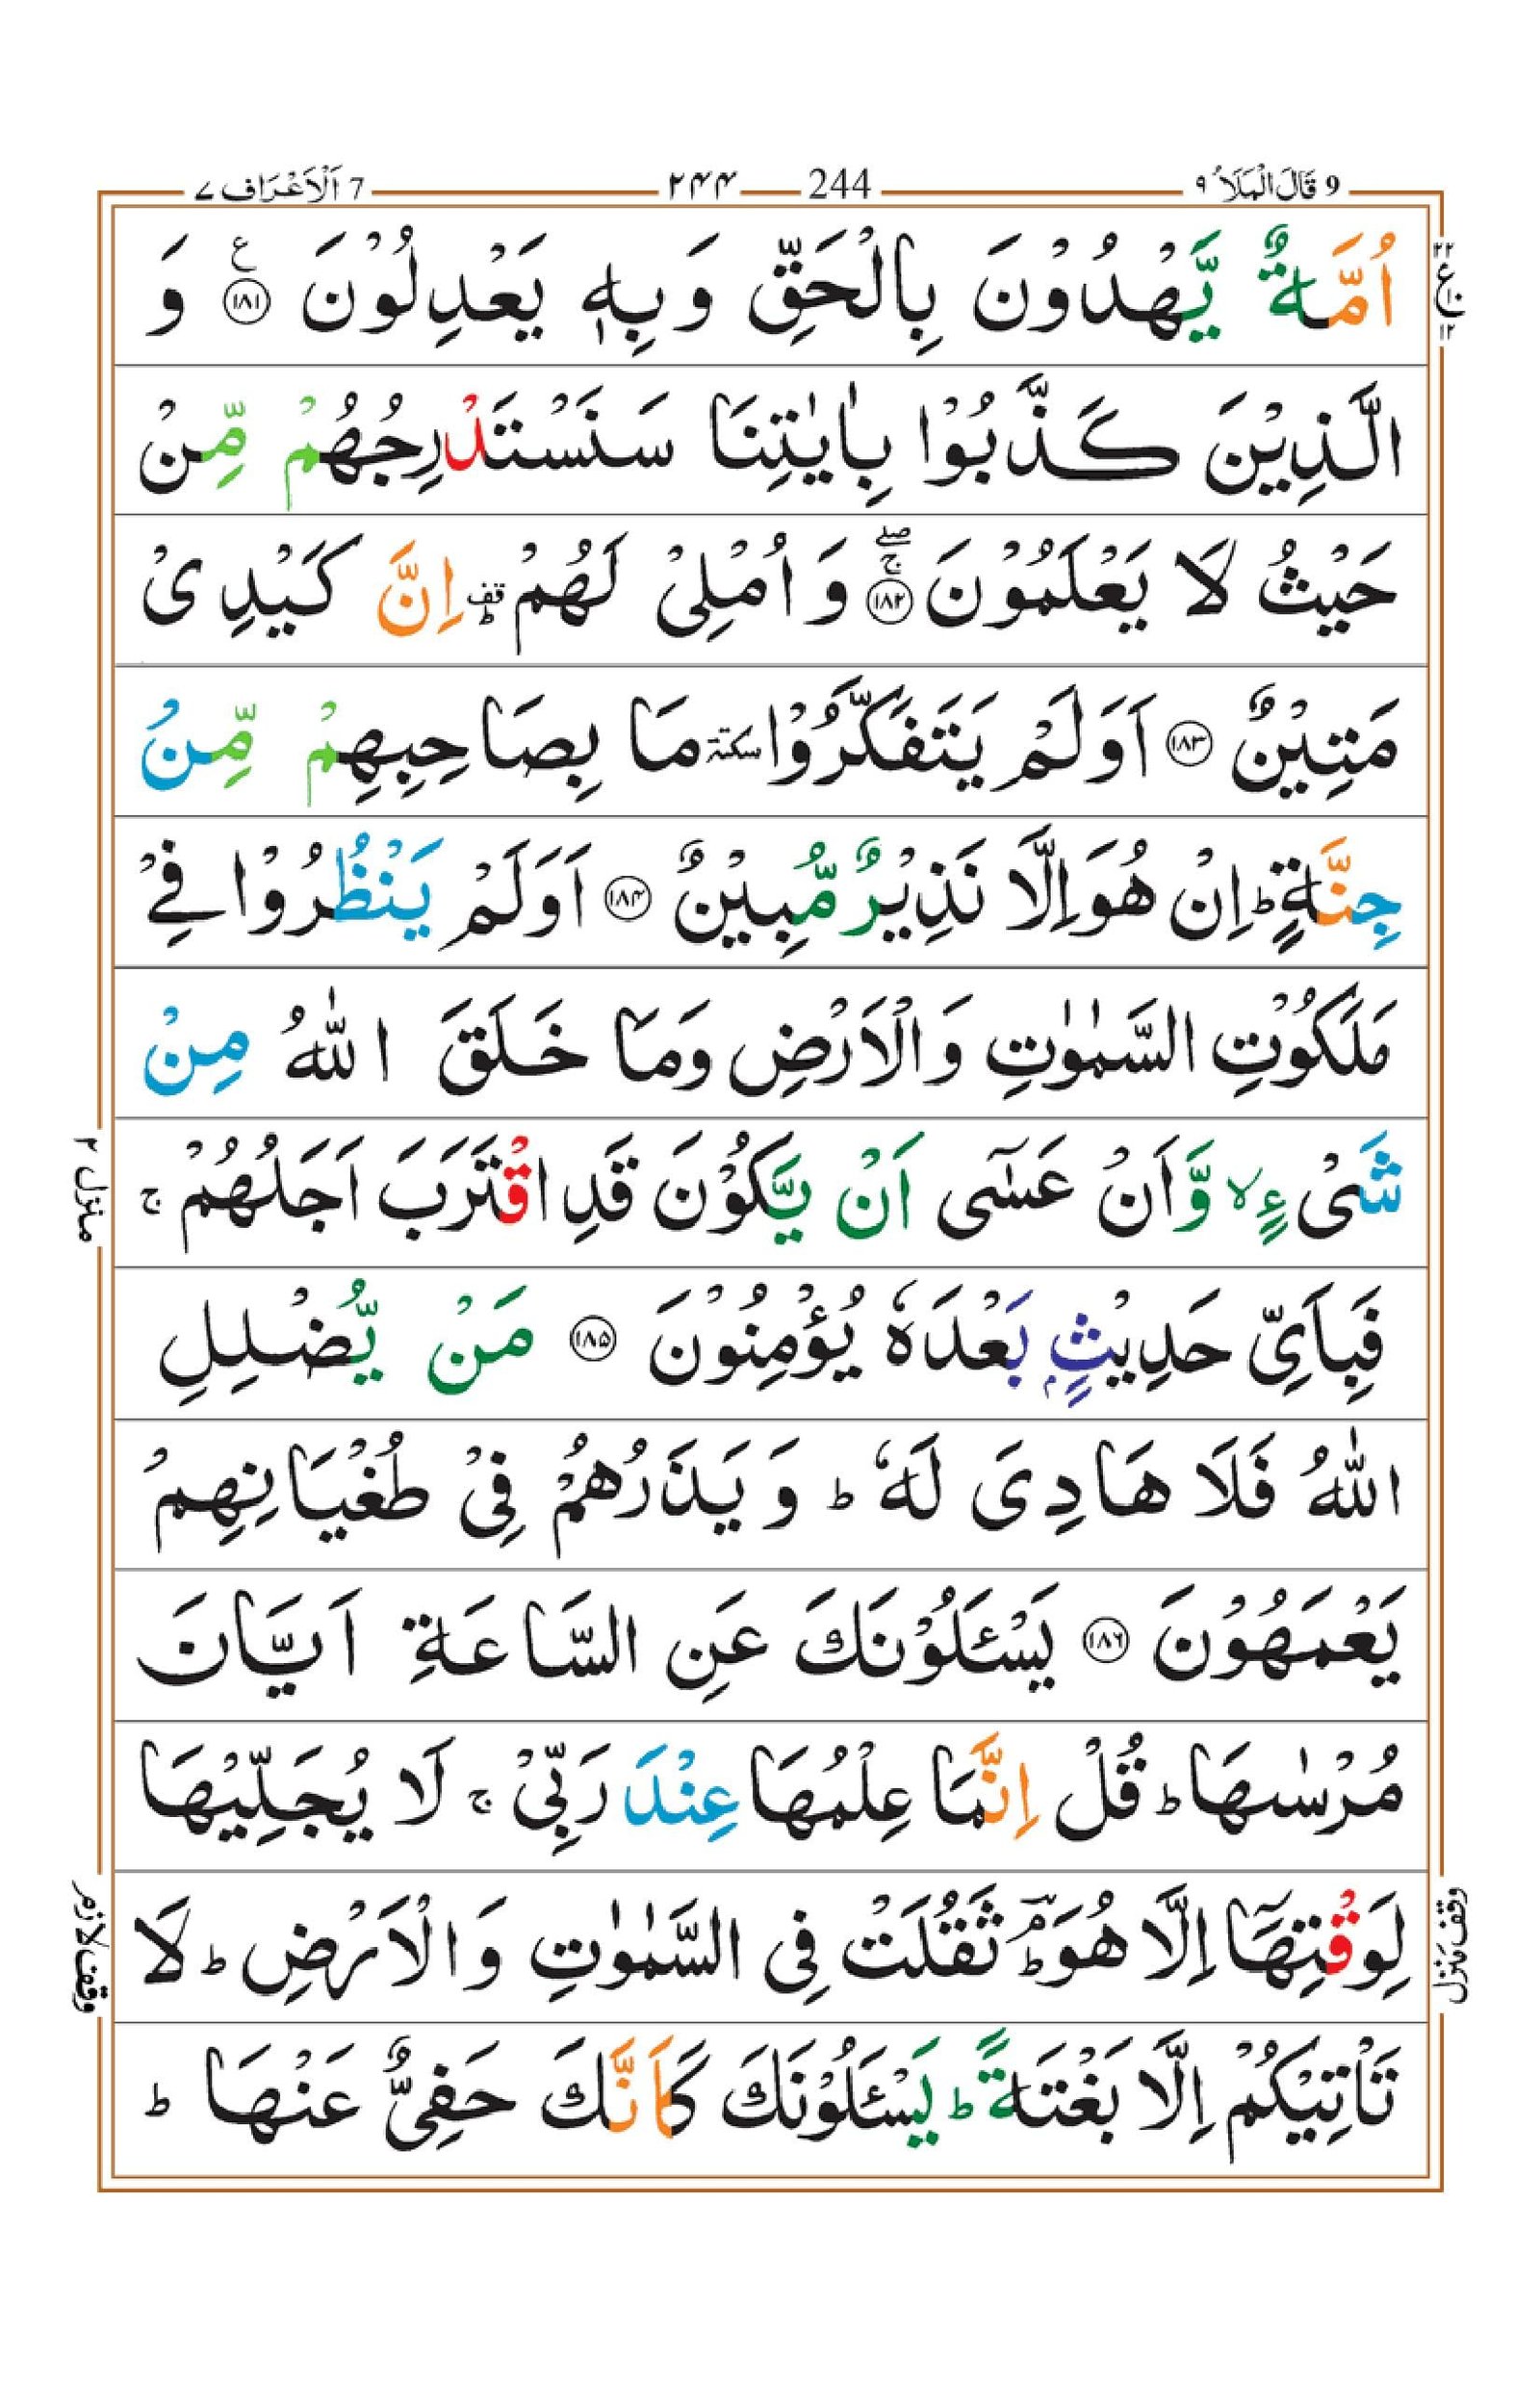 9 قَالَ الْمَلَاُ ٩ 244 ۲۴۴ 7 اَلْاَعْرَاف ٧
اُمَّةٌ يَّهْدُوْنَ بِالْحَقِّ وَبِهٖ يَعْدِلُوْنَ ۧ﴿۱۸۱﴾ وَ
الَّذِيْنَ كَذَّبُوْا بِاٰيٰتِنَا سَنَسْتَدْرِجُهُمْ مِّنْ
حَيْثُ لَا يَعْلَمُوْنَ ۚۖ﴿۱۸۲﴾ وَاُمْلِىْ لَهُمْ ؕقف اِنَّ كَيْدِىْ
مَتِيْنٌ ﴿۱۸۳﴾ اَوَلَمْ يَتَفَكَّرُوْا سكتة مَا بِصَاحِبِهِمْ مِّنْ
جِنَّةٍ ؕ اِنْ هُوَ اِلَّا نَذِيْرٌ مُّبِيْنٌ ﴿۱۸۴﴾ اَوَلَمْ يَنْظُرُوْا فِىْ
مَلَكُوْتِ السَّمٰوٰتِ وَالْاَرْضِ وَمَا خَلَقَ اللّٰهُ مِنْ
شَىْءٍ ۙ وَّاَنْ عَسٰٓى اَنْ يَّكُوْنَ قَدِ اقْتَرَبَ اَجَلُهُمْ ۚ
فَبِاَىِّ حَدِيْثٍۭ بَعْدَهٗ يُؤْمِنُوْنَ ﴿۱۸۵﴾ مَنْ يُّضْلِلِ
اللّٰهُ فَلَا هَادِىَ لَهٗ ؕ وَيَذَرُهُمْ فِىْ طُغْيَانِهِمْ
يَعْمَهُوْنَ ﴿۱۸۶﴾ يَسْئَلُوْنَكَ عَنِ السَّاعَةِ اَيَّانَ
مُرْسٰىهَا ؕ قُلْ اِنَّمَا عِلْمُهَا عِنْدَ رَبِّىْ ۚ لَا يُجَلِّيْهَا
لِوَقْتِهَآ اِلَّا هُوَ ؕۘ ثَقُلَتْ فِى السَّمٰوٰتِ وَالْاَرْضِ ؕ لَا
تَاْتِيْكُمْ اِلَّا بَغْتَةً ؕ يَسْئَلُوْنَكَ كَاَنَّكَ حَفِىٌّ عَنْهَا ؕ
۲۲
ع
۱۰
۱۲
منزل ۲
وقف لازم
وقف منزل